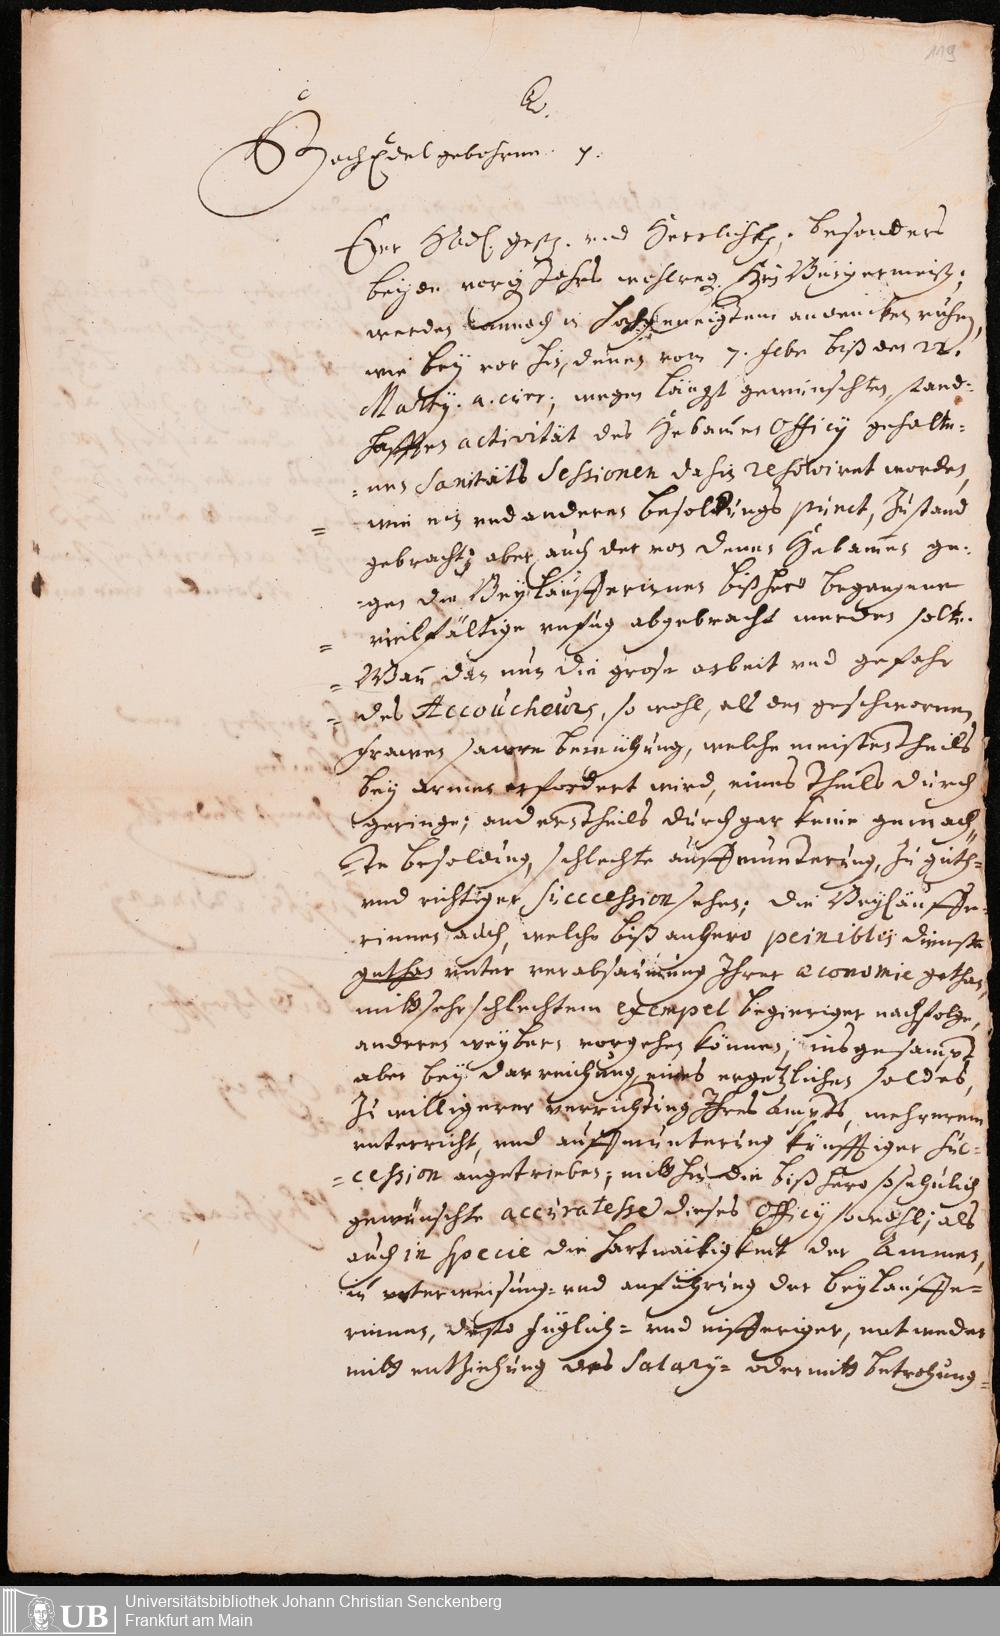 119
HochEdelgebohrne. 7.
Ewr HEdl. gestr. und Herrlichk. besonders
beyde vorig Jahrs wohlreg. Hrn Burgermeistr.
werden annoch in Hochgeneigtem andencken ruhen,
wie bey vor hin, denen vom 7. Febr biß den 22.
Marty. a. curr; wegen längst gewünschten, stand-
hafften activität des Hebamen Officy gehalte-
=nen Sanitäts Sessionen dahin resolviret worden,
= wie ein und anderer besoldungs punct, zu stand
gebracht; aber auch der von denen Hebamen ge-
=gen die Beyläufferinnen bißhero begangene
= vielfältige unfug abgebracht werden solte.
= Wan dan nun die grose arbeit und gefahr
= des Accoucheurs, so wohl, als der geschwornen
Frawen sawre bemühung, welche meistentheils
bey armen erfordert wird, eines theils durch
geringe; anderntheils durch gar keine gemach-
=te besoldung, schlechte auffmunterung, zu guth-
und richtiger succession sehen; die Beyläuffe-
rinnen auch, welche biß anhero peinibles dienste
gethan unter verabsäumung Ihrer œconomie gethan,
mitt sehr schlechtem exempel begieriger nachfolge,
anderen weybern vorgehen können, insgesampt
aber bey darreichung eines ergetzlichen soldes,
zu willigerer verrichtung Ihres Ampts, mehrerem
unterricht, und auffmunterung künfftiger suc-
=cession angetrieben; mitthin die bißhero so sehnlich
gewünschte accuratesse dieses Officy sowohl; als
auch in specie die hartnäckigkeit der Ammen,
in unterweisung- und anführung der beyläuffe-
rinnen, desto füglich- und eifferiger, entweder
mitt entziehung des Salary- oder mitt betrohung-
UB
Universitätsbibliothek Johann Christian Senckenberg
Frankfurt am Main